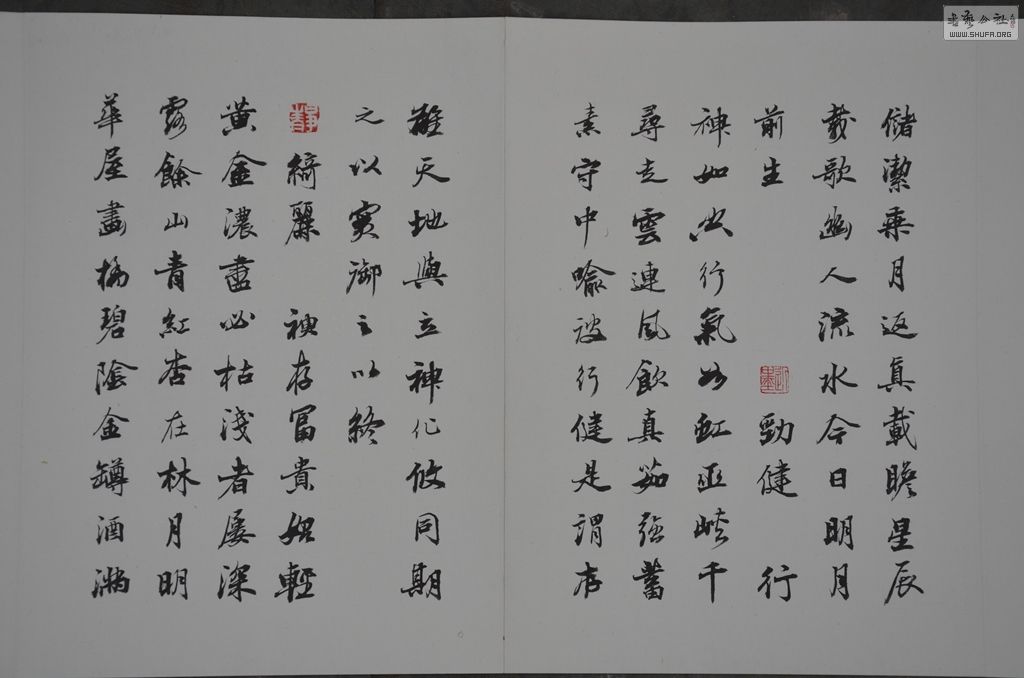 儲潔乘月返真載瞻星辰
載歌幽人流水今日明月
前生
勁健 行
神如空行氣如虹巫峽千
尋走雲連風飲真茹強蓄
素守中喻彼行健是謂存
雄天地與立神化攸同期
之以實御之以終
靜
綺麗 神存富貴始輕
黃金濃盡必枯淺者屢深
露餘山青紅杏在林月明
華屋畫橋碧陰金罇酒滿
書藝公社
WWW.SHUFA.ORG